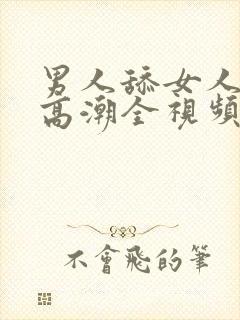 男人舔女人
高潮全視頻
不會飛的筆